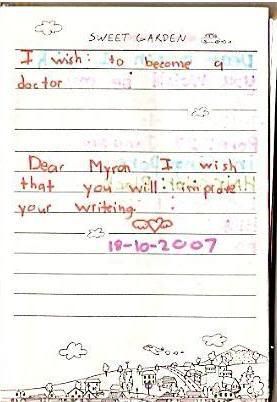 SWEET GARDEN
I wish: to become a
doctor
Dear Myron I wish
that you will: improve
your writing
18-10-2007